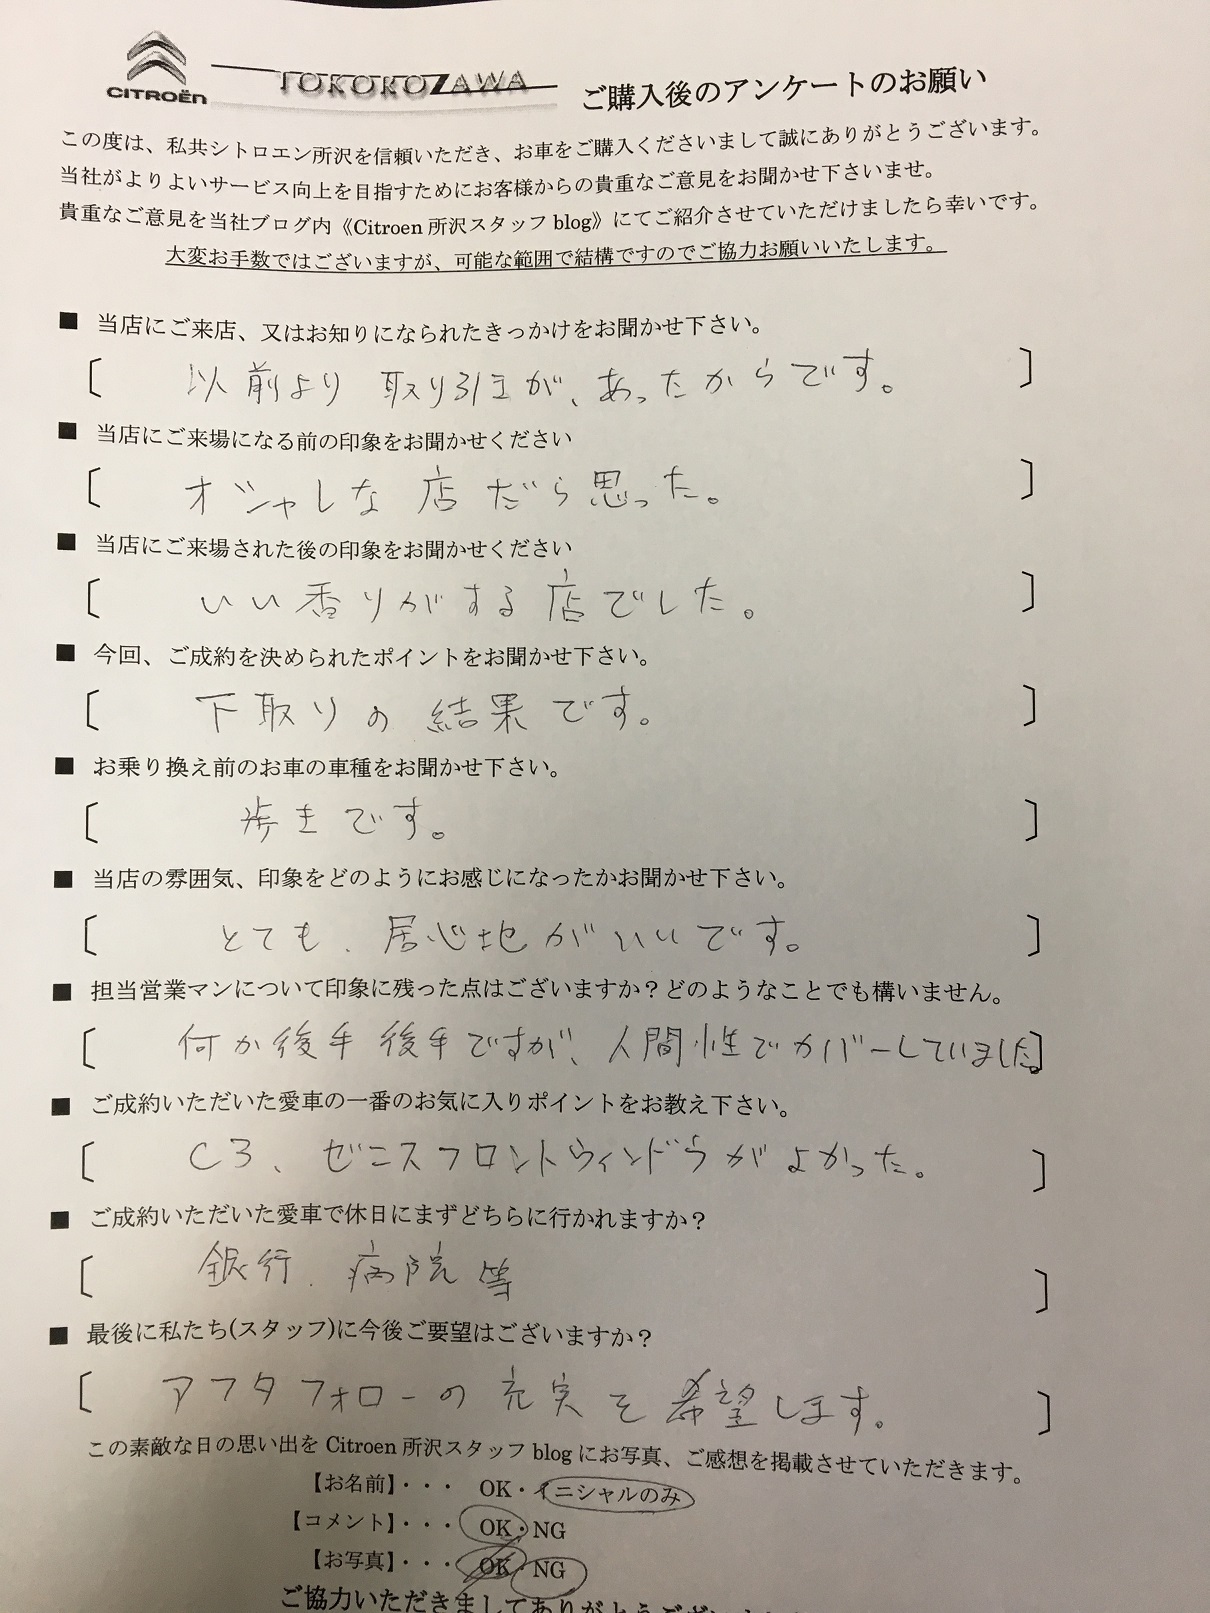 CITROËN TOKOKOZAWA ご購入後のアンケートのお願い
この度は、私共シトロエン所沢を信頼いただき、お車をご購入くださいまして誠にありがとうございます。
当社がよりよいサービス向上を目指すためにお客様からの貴重なご意見をお聞かせ下さいませ。
貴重なご意見を当社ブログ内《Citroen 所沢スタッフ blog》にてご紹介させていただけましたら幸いです。
大変お手数ではございますが、可能な範囲で結構ですのでご協力お願いいたします。
■ 当店にご来店、又はお知りになられたきっかけをお聞かせ下さい。
〔 以前より 取り引きが、あったからです。 〕
■ 当店にご来場になる前の印象をお聞かせください
〔 オシャレな 店だら思った。 〕
■ 当店にご来場された後の印象をお聞かせください
〔 いい香りがする店でした。 〕
■ 今回、ご成約を決められたポイントをお聞かせ下さい。
〔 下取りの 結果です。 〕
■ お乗り換え前のお車の車種をお聞かせ下さい。
〔 歩きです。 〕
■ 当店の雰囲気、印象をどのようにお感じになったかお聞かせ下さい。
〔 とても、居心地がいいです。 〕
■ 担当営業マンについて印象に残った点はございますか？どのようなことでも構いません。
〔 何か後手後手ですが、人間性でカバーしていました。 〕
■ ご成約いただいた愛車の一番のお気に入りポイントをお教え下さい。
〔 C3、ゼニスフロントウィンドウがよかった。 〕
■ ご成約いただいた愛車で休日にまずどちらに行かれますか？
〔 銀行、病院等 〕
■ 最後に私たち(スタッフ)に今後ご要望はございますか？
〔 アフタフォローの充実を希望します。 〕
この素敵な日の思い出を Citroen 所沢スタッフ blog にお写真、ご感想を掲載させていただきます。
【お名前】・・・ OK・イニシャルのみ
【コメント】・・・ OK・NG
【お写真】・・・ OK・NG
ご協力いただきましてありがとうござい